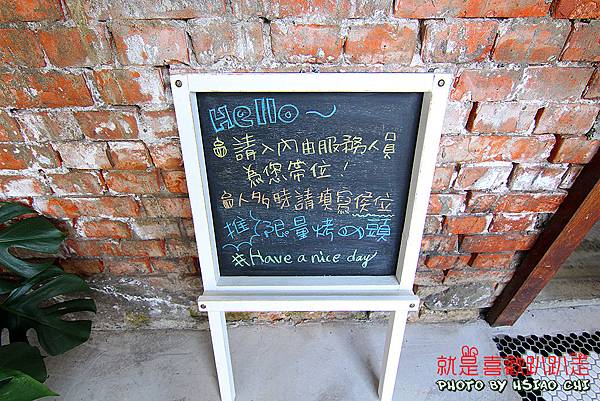 Hello～
請入內由服務人員
為您帶位！
人多時請填寫候位
推 限量烤 頭
#Have a nice day!
就是喜歡趴趴走
PHOTO BY HSIAO CHI